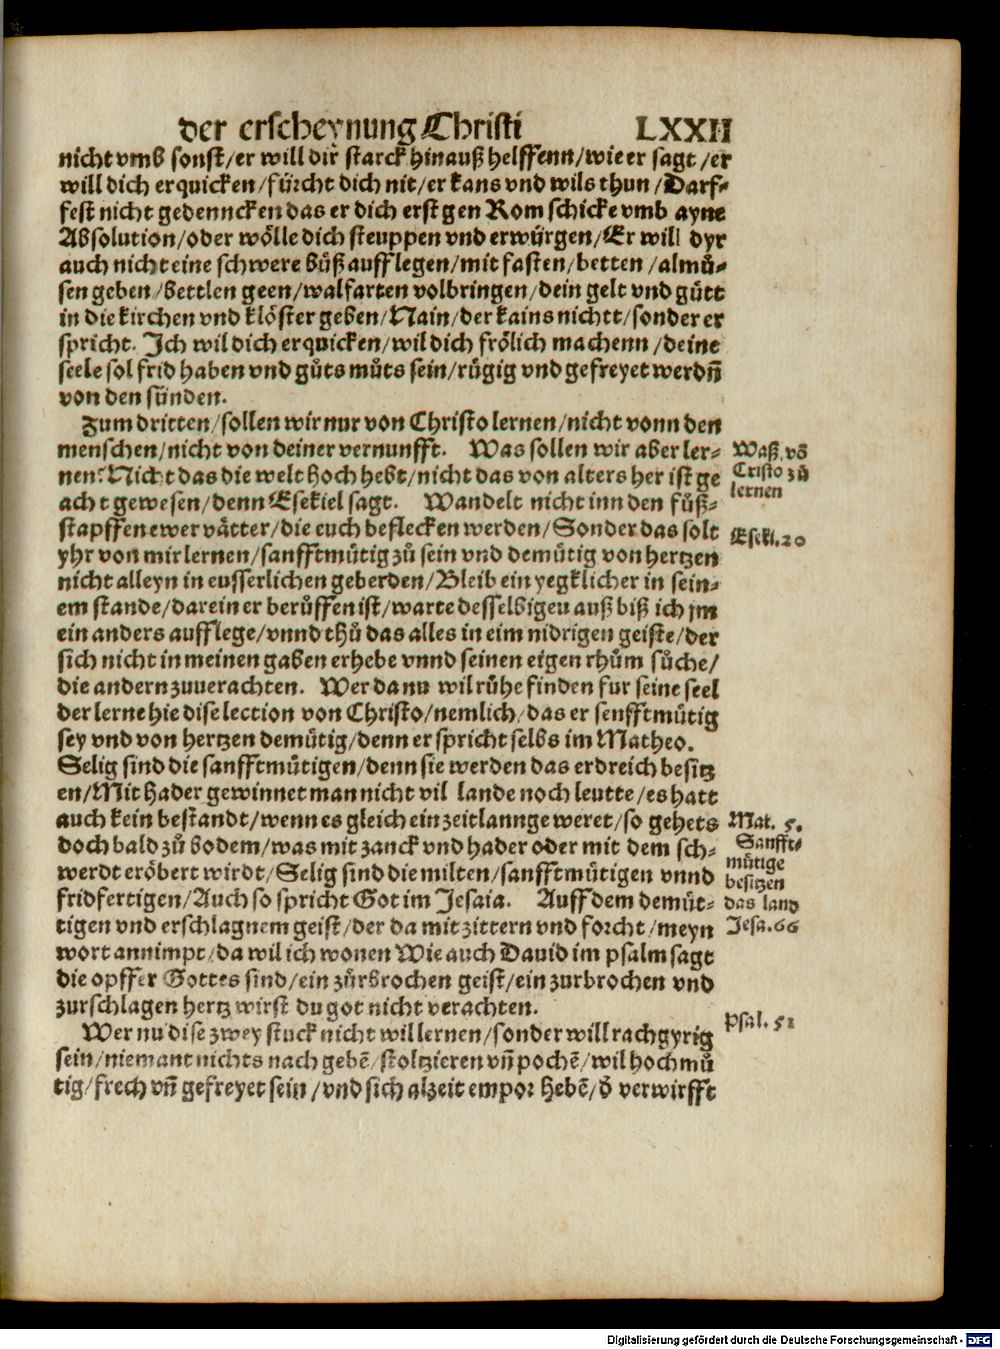 der erscheynung Christi LXXII
nicht vmb sonst/er will dir starck hinauß helffenn/wie er sagt/er
will dich erquicken/fürcht dich nit/er kans vnd wils thun/Darf-
fest nicht gedenncken das er dich erst gen Rom schicke vmb ayne
Absolution/oder wölle dich steuppen vnd erwürgen/Er will dyr
auch nicht eine schwere büß aufflegen/mit fasten/betten/almů-
sen geben/bettlen geen/walfarten volbringen/dein gelt vnd gůtt
in die kirchen vnd klöster geben/Nain/der kains nichtt/sonder er
spricht. Ich wil dich erquicken/wil dich frölich machenn/deine
seele sol frid haben vnd gůts můts sein/růgig vnd gefreyet werdñ
von den sünden.
Zum dritten/sollen wir nur von Christo lernen/nicht vonn den
menschen/nicht von deiner vernunfft. Was sollen wir aber ler-
nen? Nicht das die welt hoch hebt/nicht das von alters her ist ge
acht gewesen/denn Esekiel sagt. Wandelt nicht inn den füß-
stapffen ewer vätter/die euch beflecken werden/Sonder das solt
yhr von mir lernen/sanfftmütig zů sein vnd demütig von hertzen
nicht alleyn in eusserlichen geberden/Bleib ein yegklicher in sein-
em stande/darein er berůffen ist/warte desselbigen auß biß ich jm
ein anders aufflege/vnnd thů das alles in eim nidrigen geiste/der
sich nicht in meinen gaben erhebe vnnd seinen eigen rhům sůche/
die andern zuuerachten. Wer dann wil růhe finden fur seine seel
der lerne hie dise lection von Christo/nemlich/das er senfftmütig
sey vnd von hertzen demütig/denn er spricht selbs im Matheo.
Selig sind die sanfftmütigen/denn sie werden das erdreich besitz
en/Mit hader gewinnet man nicht vil lande noch leutte/es hatt
auch kein bestandt/wenn es gleich ein zeitlannge weret/so gehets
doch bald zů bodem/was mit zanck vnd hader oder mit dem sch-
werdt eröbert wirdt/Selig sind die milten/sanfftmütigen vnnd
fridfertigen/Auch so spricht Got im Jesaia. Auff dem demüt-
tigen vnd erschlagnem geist/der da mit zittern vnd forcht/meyn
wort annimpt/da wil ich wonen Wie auch Dauid im psalm sagt
die opffer Gottes sind/ein zůrbrochen geist/ein zurbrochen vnd
zurschlagen hertz wirst du got nicht verachten.
Wer nu dise zwey stuck nicht wil lernen/sonder will rachgyrig
sein/niemant nichts nach gebē/stoltzieren vñ pochē/wil hochmů
tig/frech vñ gefreyet sein/vnd sich alzeit empor hebē/ð verwirfft
Waß vō
Cristo zů
lernen
Eseki.20
Mat. 5.
Sanfft-
mütige
besitzen
das land
Jesa.66
Psal. 51
Digitalisierung gefördert durch die Deutsche Forschungsgemeinschaft - DFG